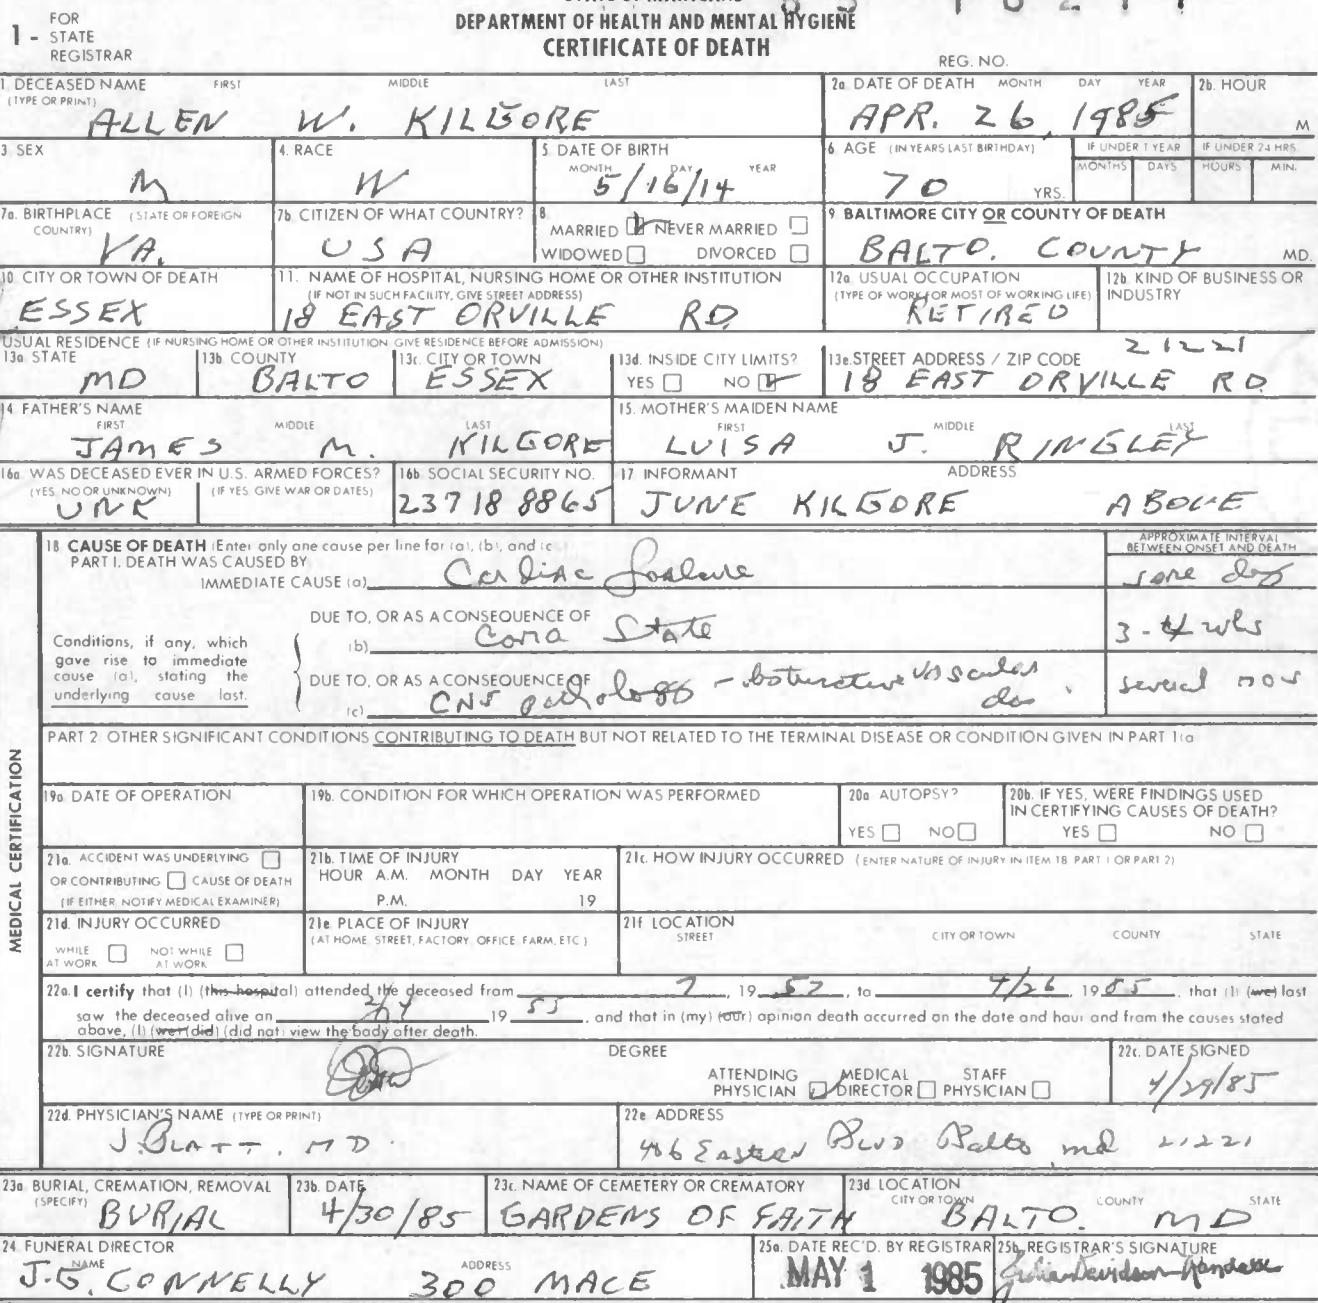 DEPARTMENT OF HEALTH AND MENTAL HYGIENE
CERTIFICATE OF DEATH
1 - FOR STATE REGISTRAR
REG. NO.
1. DECEASED NAME FIRST MIDDLE LAST
(TYPE OR PRINT)
ALLEN W. KILGORE
2a. DATE OF DEATH MONTH DAY YEAR
APR. 26, 1985
2b. HOUR
M
3. SEX
M
4. RACE
W
5. DATE OF BIRTH
MONTH DAY YEAR
5/16/14
6. AGE (IN YEARS LAST BIRTHDAY)
70 YRS.
IF UNDER 1 YEAR
MONTHS DAYS
IF UNDER 24 HRS.
HOURS MIN.
7a. BIRTHPLACE (STATE OR FOREIGN COUNTRY)
VA.
7b. CITIZEN OF WHAT COUNTRY?
USA
8.
MARRIED NEVER MARRIED
WIDOWED DIVORCED
9. BALTIMORE CITY OR COUNTY OF DEATH
BALTO. COUNTY MD.
10. CITY OR TOWN OF DEATH
ESSEX
11. NAME OF HOSPITAL, NURSING HOME OR OTHER INSTITUTION
(IF NOT IN SUCH FACILITY, GIVE STREET ADDRESS)
18 EAST ORVILLE RD.
12a. USUAL OCCUPATION
(TYPE OF WORK FOR MOST OF WORKING LIFE)
RETIRED
12b. KIND OF BUSINESS OR INDUSTRY
USUAL RESIDENCE (IF NURSING HOME OR OTHER INSTITUTION GIVE RESIDENCE BEFORE ADMISSION)
13a. STATE
MD
13b. COUNTY
BALTO
13c. CITY OR TOWN
ESSEX
13d. INSIDE CITY LIMITS?
YES NO
13e. STREET ADDRESS / ZIP CODE
21221
18 EAST ORVILLE RD.
14. FATHER'S NAME
FIRST MIDDLE LAST
JAMES M. KILGORE
15. MOTHER'S MAIDEN NAME
FIRST MIDDLE LAST
LUISA J. RINGLEY
16a. WAS DECEASED EVER IN U.S. ARMED FORCES?
(YES, NO OR UNKNOWN) (IF YES, GIVE WAR OR DATES)
UNK
16b. SOCIAL SECURITY NO.
237 18 8865
17. INFORMANT ADDRESS
JUNE KILGORE ABOVE
MEDICAL CERTIFICATION
18. CAUSE OF DEATH (Enter only one cause per line for (a), (b), and (c
PART I. DEATH WAS CAUSED BY
IMMEDIATE CAUSE (a) Cardiac failure
APPROXIMATE INTERVAL BETWEEN ONSET AND DEATH
Conditions, if any, which gave rise to immediate cause (a), stating the underlying cause last.
DUE TO, OR AS A CONSEQUENCE OF
(b) Coma State
3-4 wks
DUE TO, OR AS A CONSEQUENCE OF
(c) CNS pathology - vascular
several mos
PART 2. OTHER SIGNIFICANT CONDITIONS CONTRIBUTING TO DEATH BUT NOT RELATED TO THE TERMINAL DISEASE OR CONDITION GIVEN IN PART 1(a
19a. DATE OF OPERATION
19b. CONDITION FOR WHICH OPERATION WAS PERFORMED
20a. AUTOPSY?
YES NO
20b. IF YES, WERE FINDINGS USED IN CERTIFYING CAUSES OF DEATH?
YES NO
21a. ACCIDENT WAS UNDERLYING
OR CONTRIBUTING CAUSE OF DEATH
(IF EITHER, NOTIFY MEDICAL EXAMINER)
21b. TIME OF INJURY
HOUR A.M. MONTH DAY YEAR
P.M. 19
21c. HOW INJURY OCCURRED (ENTER NATURE OF INJURY IN ITEM 18 PART 1 OR PART 2)
21d. INJURY OCCURRED
WHILE AT WORK NOT WHILE AT WORK
21e. PLACE OF INJURY
(AT HOME, STREET, FACTORY, OFFICE, FARM, ETC.)
21f. LOCATION
STREET CITY OR TOWN COUNTY STATE
22a. I certify that (I) (this hospital) attended the deceased from 7, 19 57, to 4/26, 1985, that (I) (we) last
saw the deceased alive on 19 , and that in (my) (our) opinion death occurred on the date and hour and from the causes stated
above, (I) (we) (did) (did not) view the body after death.
22b. SIGNATURE
DEGREE
ATTENDING PHYSICIAN MEDICAL DIRECTOR STAFF PHYSICIAN
22c. DATE SIGNED
4/29/85
22d. PHYSICIAN'S NAME (TYPE OR PRINT)
J. BLATT, MD
22e. ADDRESS
406 Eastern Blvd Balto md 21221
23a. BURIAL, CREMATION, REMOVAL (SPECIFY)
BURIAL
23b. DATE
4/30/85
23c. NAME OF CEMETERY OR CREMATORY
GARDENS OF FAITH
23d. LOCATION
CITY OR TOWN COUNTY STATE
BALTO. MD
24. FUNERAL DIRECTOR
NAME ADDRESS
J.G. CONNELLY 300 MACE
25a. DATE REC'D. BY REGISTRAR
MAY 1 1985
25b. REGISTRAR'S SIGNATURE
Julia Davidson-Randall